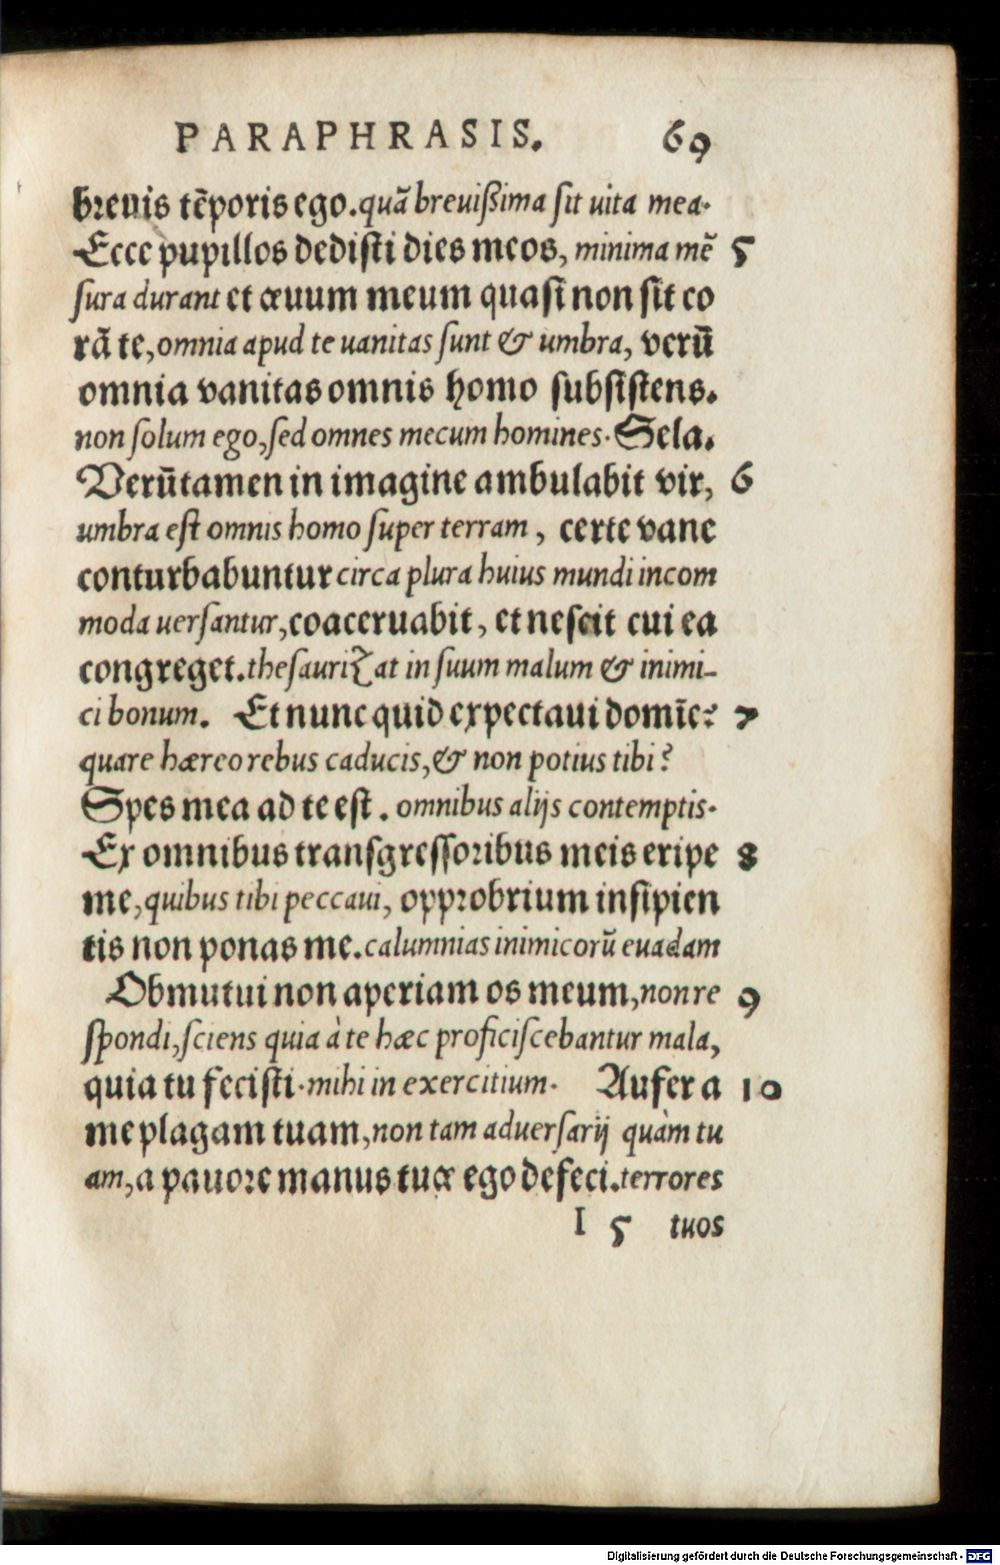 PARAPHRASIS. 69
breuis tẽporis ego. quã breuißima sit uita mea.
Ecce pupillos dedisti dies meos, minima mẽ 5
sura durant et æuum meum quasi non sit co
rã te, omnia apud te uanitas sunt & umbra, verũ
omnia vanitas omnis homo subsistens.
non solum ego, sed omnes mecum homines. Sela.
Verũtamen in imagine ambulabit vir, 6
umbra est omnis homo super terram, certe vane
conturbabuntur circa plura huius mundi incom
moda uersantur, coaceruabit, et nescit cui ea
congreget. thesaurizat in suum malum & inimi-
ci bonum. Et nunc quid expectaui domĩe? 7
quare hæreo rebus caducis, & non potius tibi?
Spes mea ad te est. omnibus alijs contemptis.
Ex omnibus transgressoribus meis eripe 8
me, quibus tibi peccaui, opprobrium insipien
tis non ponas me. calumnias inimicorũ euadam
Obmutui non aperiam os meum, non re 9
spondi, sciens quia à te hæc proficiscebantur mala,
quia tu fecisti. mihi in exercitium. Aufer a 10
me plagam tuam, non tam aduersarij quàm tu
am, a pauore manus tuæ ego defeci. terrores
I 5 tuos
Digitalisierung gefördert durch die Deutsche Forschungsgemeinschaft - DFG